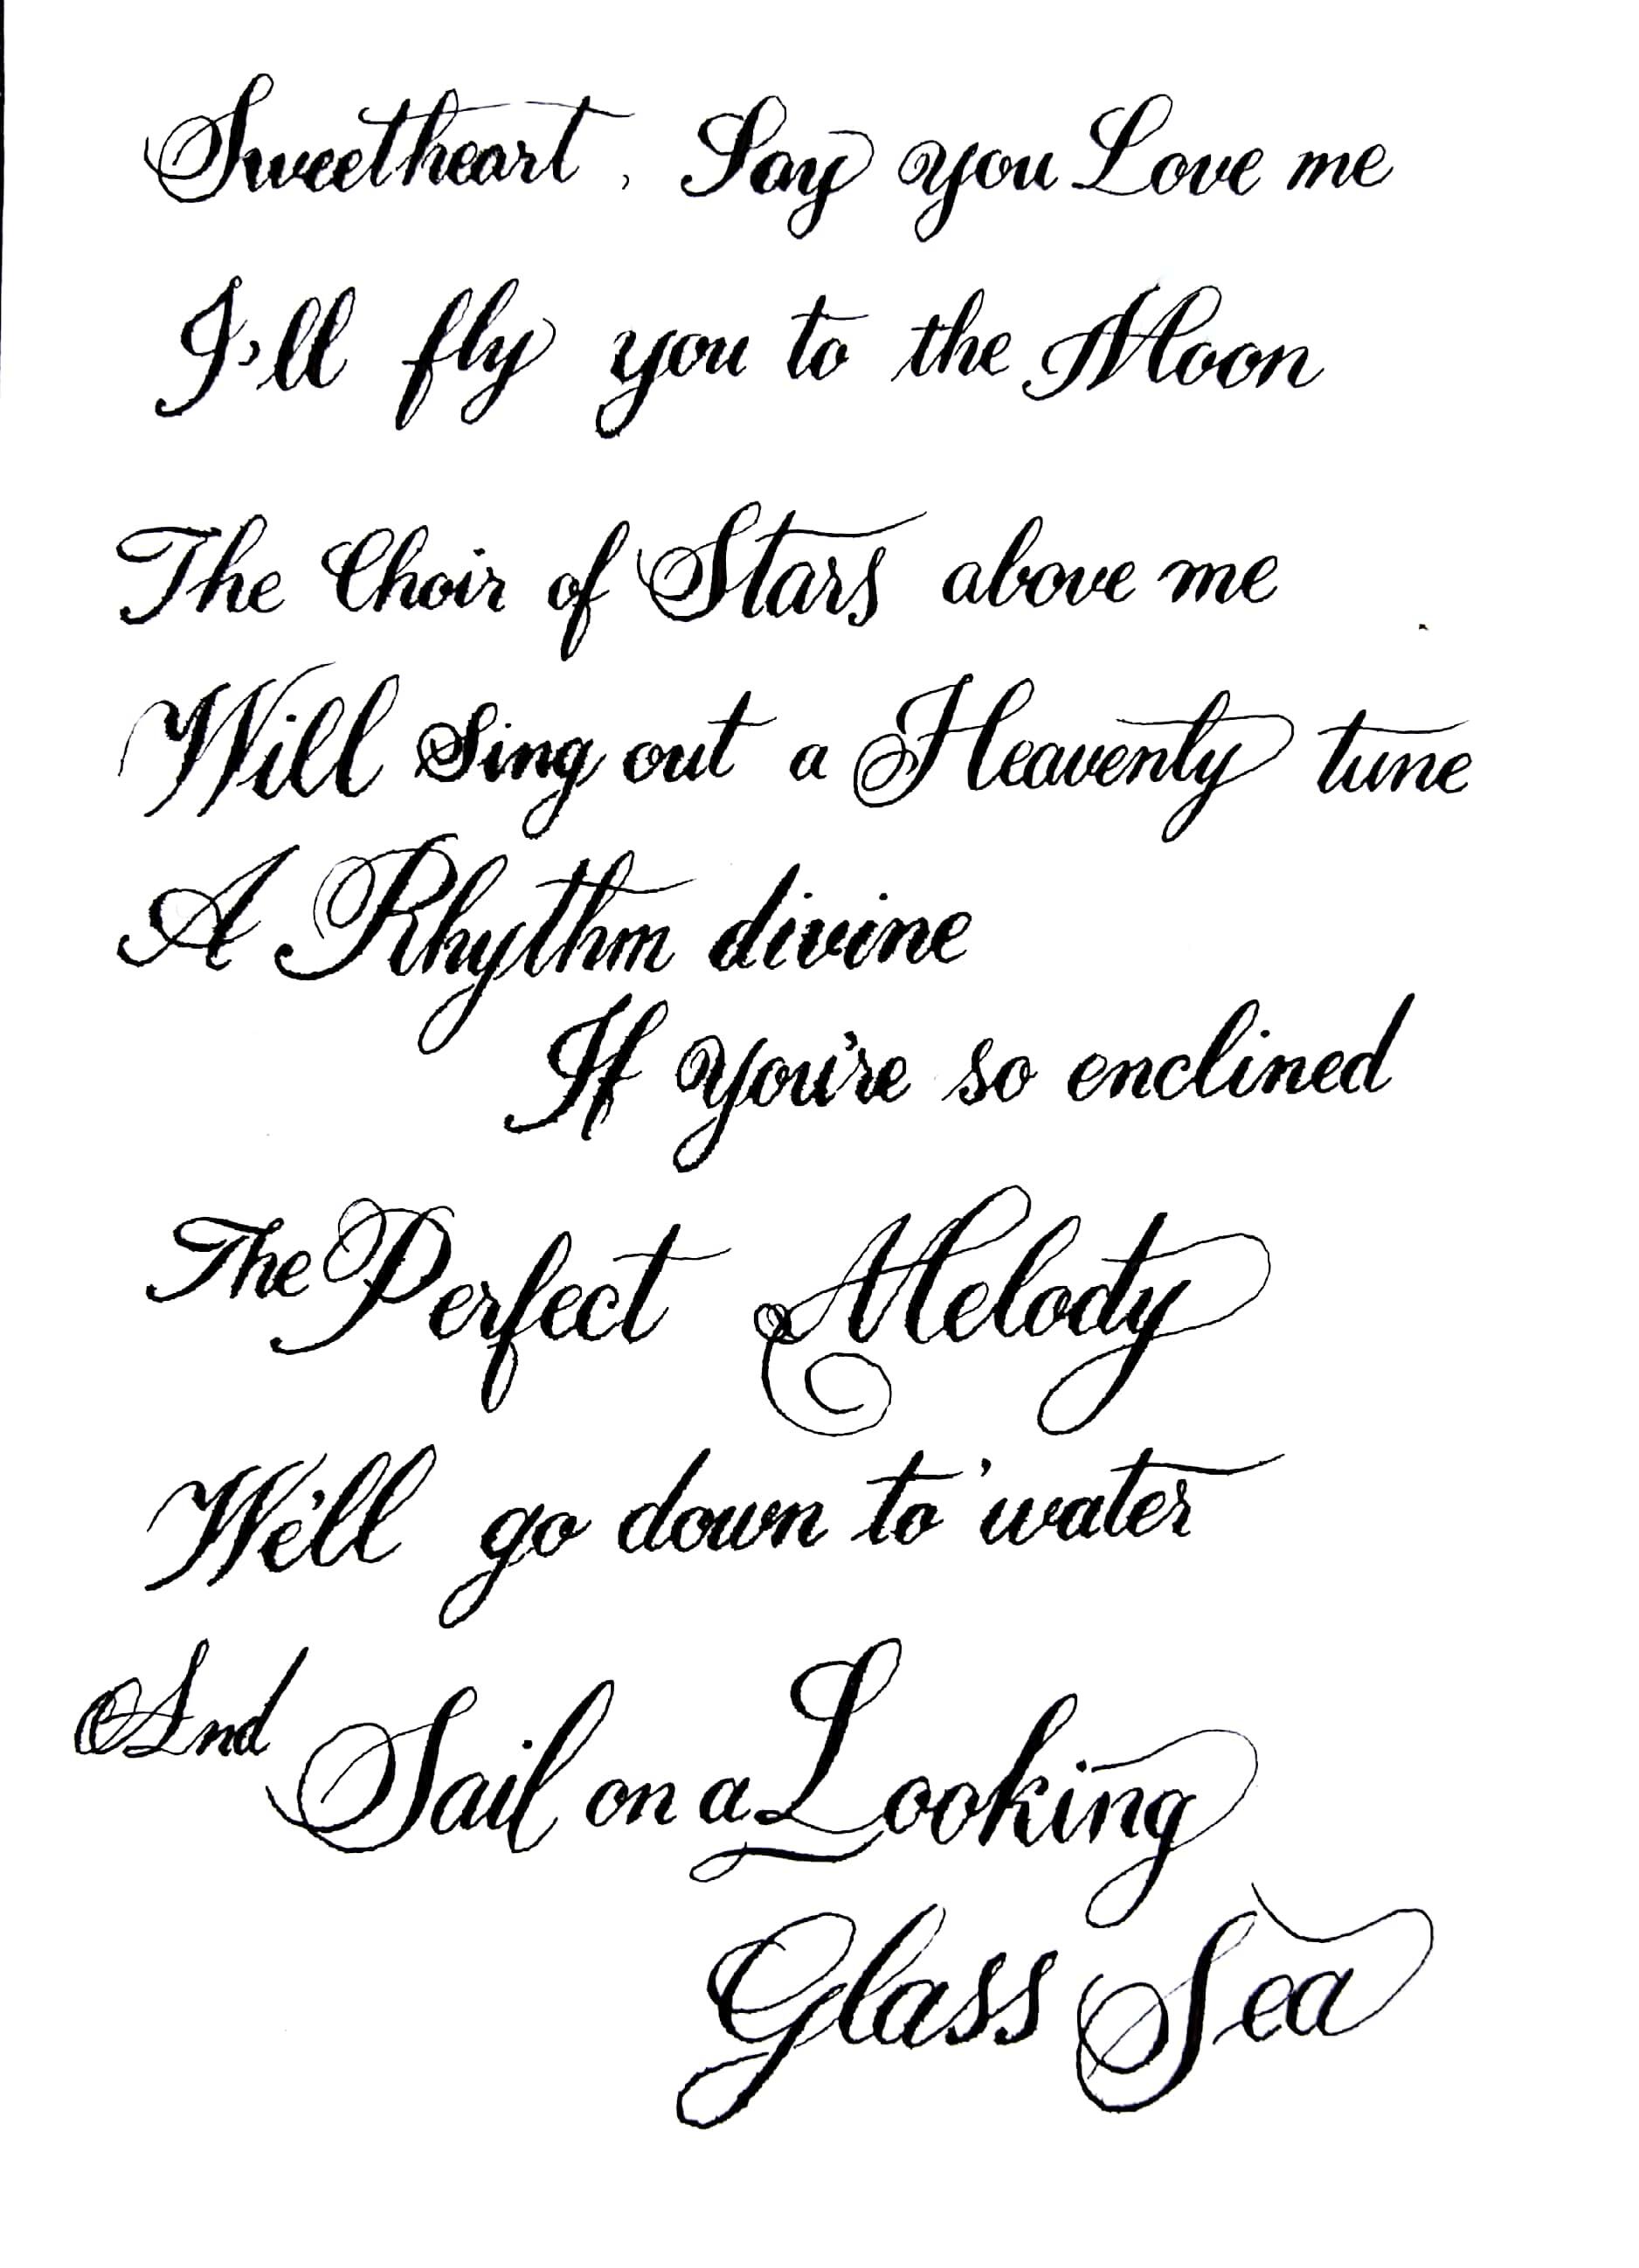 Sweetheart, Say you Love me
I'll fly you to the Moon
The Choir of Stars above me
Will Sing out a Heavenly tune
A Rhythm divine
If you're so enclined
The Perfect Melody
We'll go down to 'water
And Sail on a Looking
Glass Sea